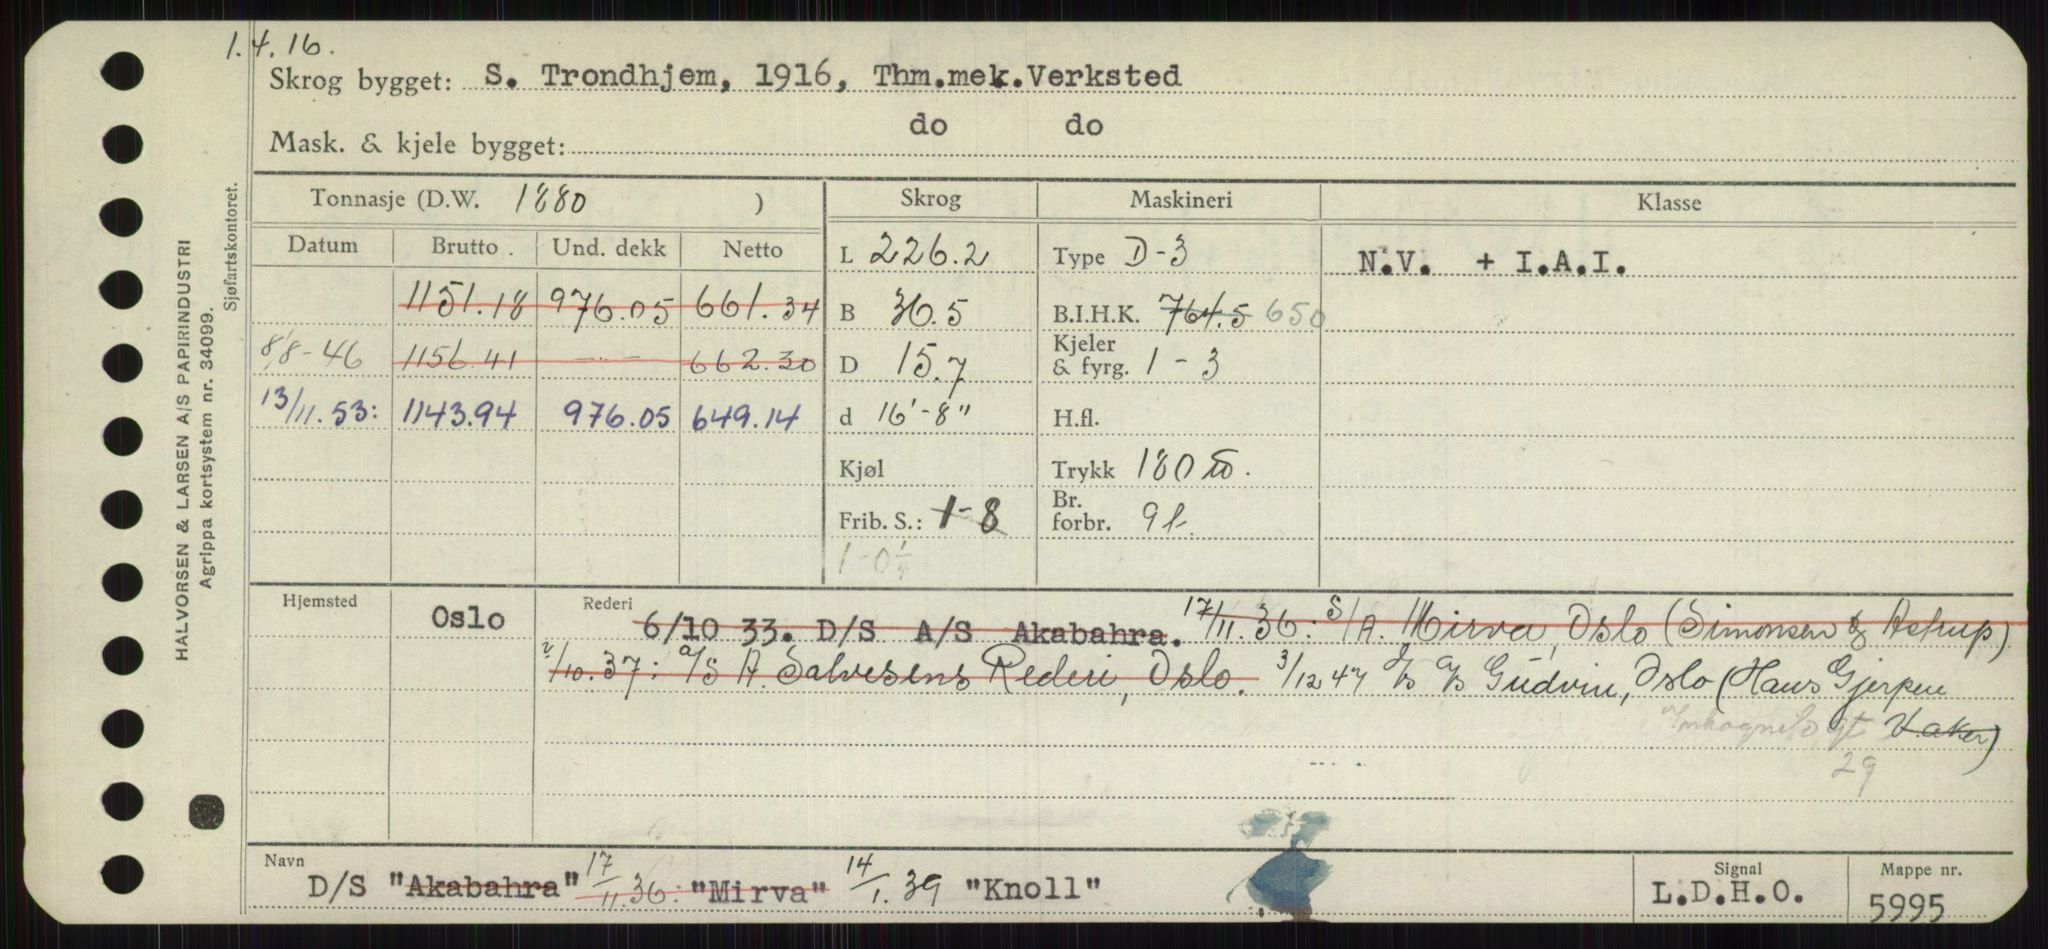 1.4.16.
Skrog bygget: S. Trondhjem, 1916, Thm.mek.Verksted
Mask. & kjele bygget: do do
Tonnasje (D.W. 1880 ) Skrog Maskineri Klasse
Datum Brutto. Und. dekk Netto L 226.2 Type D-3 N.V. + I.A.I.
1151.18 976.05 661.34 B 36.5 B.I.H.K. 764.5 650
8/8-46 1156.41 — 662.30 D 15.7 Kjeler & fyrg. 1 - 3
13/11.53: 1143.94 976.05 649.14 d 16'-8" H.fl.
Kjøl Trykk 180
Frib. S.: 1-8 Br. forbr. 9
1-0
Hjemsted Oslo Rederi 6/10 33. D/S A/S Akabahra. 17/11.36: S/A. Mirva, Oslo (Simonsen & Astrup)
/10.37: A/S A. Salvesens Rederi, Oslo. 3/12 47 A/S Gudvin, Oslo (Hans Gjerpen
Inkognito gt Vaker)
29
Navn D/S "Akabahra" 17/11.36: "Mirva" 14/1.39 "Knoll" Signal L.D.H.O. Mappe nr. 5995
HALVORSEN & LARSEN A/S PAPIRINDUSTRI
Agrippa kortsystem nr. 34099.
Sjøfartskontoret.